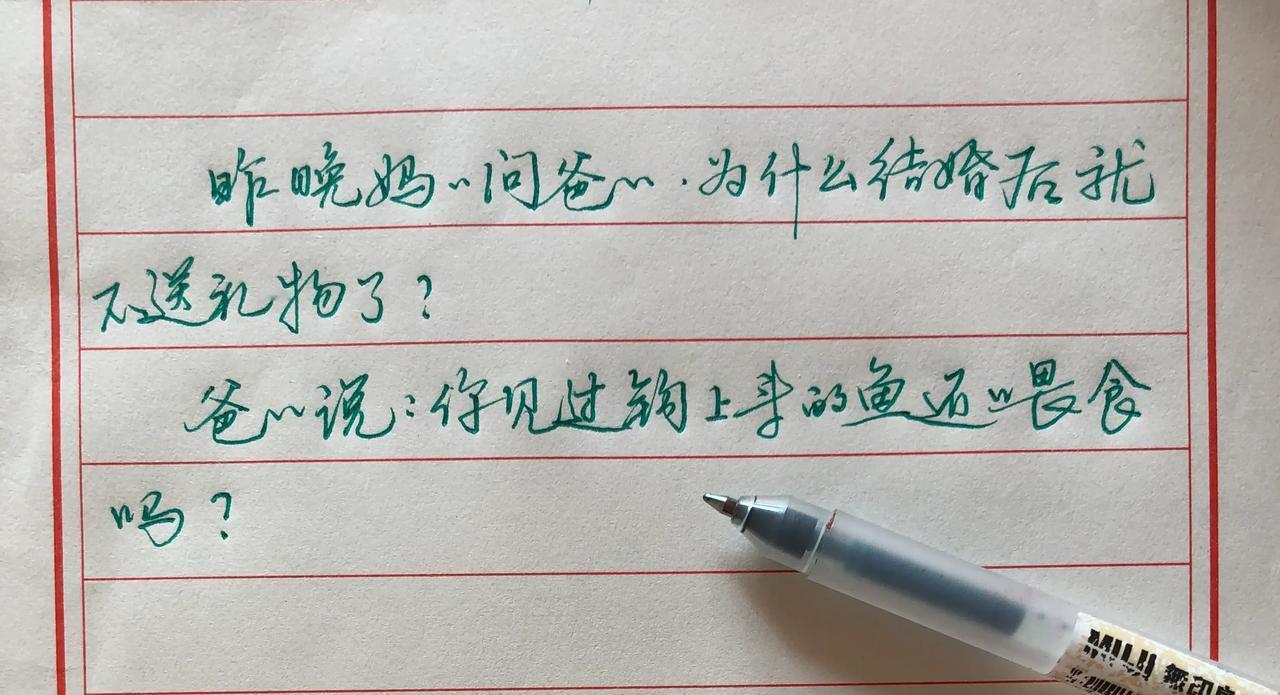 昨晚妈〃问爸〃.为什么结婚后就
不送礼物了？
爸〃说：你见过钩上来的鱼还喂食
吗？
MUJI 無印